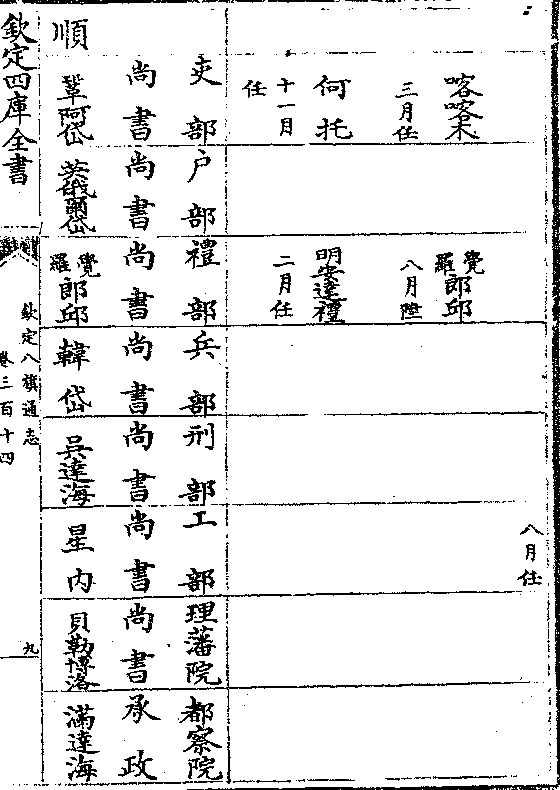 八月任
喀喀木
三月任
何托
十一月
任
覺羅郎邱
八月陞
明安達禮
二月任
吏部
尚書
鞏阿岱
户部
尚書
英俄爾岱
禮部
尚書
覺羅郎邱
兵部
尚書
韓岱
刑部
尚書
吳達海
工部
尚書
星内
理藩院
尚書
貝勒博洛
都察院
承政
滿達海
順
欽定四庫全書
欽定八旗通志
卷三百十四
九